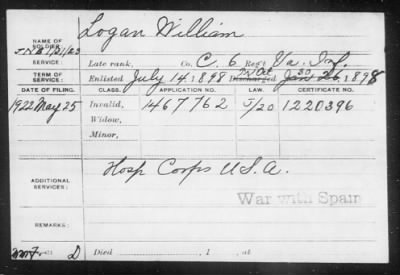 NAME OF SOLDIER: Logan William
SERVICE: Late rank, Co. C. 6 Reg't Va. Inf.
TERM OF SERVICE: Enlisted July 14, 1898 Discharged Jan 26, 1898
DATE OF FILING. CLASS. APPLICATION NO. LAW. CERTIFICATE NO.
1922 May 25 Invalid, 1467762 J/20 1220396
Widow,
Minor,
ADDITIONAL SERVICES: Hosp Corps U.S.A.
War with Spain
REMARKS:
D Died , 1 , at